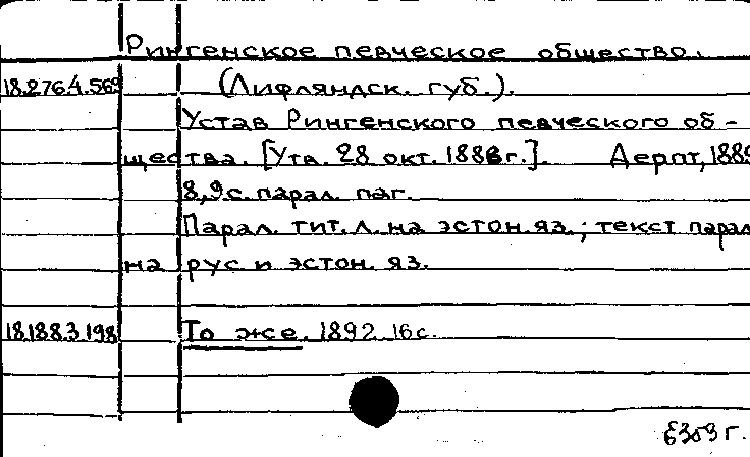 Рингенское певческое общество.
18.276.4.569 (Лифляндск. губ.).
Устав Рингенского певческого об-
щества. [Утв. 28 окт. 1886г.]. Дерпт, 1889
8,9с. парал. паг.
Парал. тит. л. на эстон. яз.; текст парал
на рус и эстон. яз.
18.188.3.198 То же. 1892. 16с.